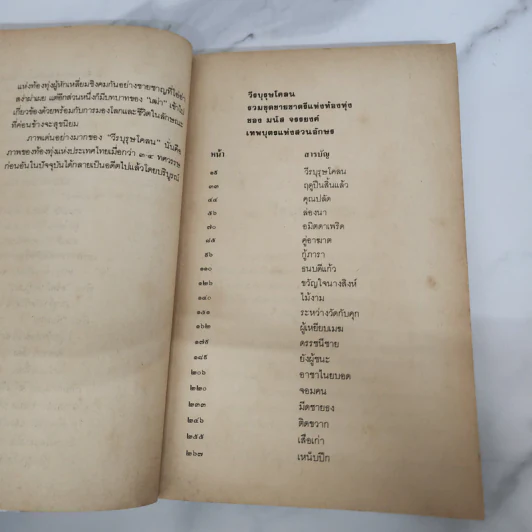 แห่งท้องทุ่งผู้หักเหลี่ยมชิงคมกันอย่างชายชาญที่
สง่าผ่าเผย แต่อีกส่วนหนึ่งก็มีบทบาทของ "เฒ่า" เข้าไป
เกี่ยวข้องด้วยพร้อมกับการมองโลกและชีวิตในลักษณะ
ที่ค่อนข้างจะสุขนิยม
ภาพเด่นอย่างมากของ "วีรบุรุษโคลน" นั่นคือ
ภาพของท้องทุ่งแห่งประเทศไทยเมื่อกว่า ๓-๔ ทศวรรษ
ก่อนอันในปัจจุบันได้กลายเป็นอดีตไปแล้วโดยบริบูรณ์
วีรบุรุษโคลน
รวมชุดชายชาตรีแห่งท้องทุ่ง
ของ มนัส จรรยงค์
เทพบุตรแห่งสวนอักษร
หน้า สารบัญ
๑๕ วีรบุรุษโคลน
๓๓ ฤดูปืนสิ้นแล้ว
๔๔ คุณปลัด
๕๖ ล่องนา
๗๐ อมิตดาเพริด
๘๕ คู่อาฆาต
๙๖ กู้ภารา
๑๑๐ ธนบดีแก้ว
๑๒๖ ขวัญใจนางสิงห์
๑๔๐ ไม้งาม
๑๕๑ ระหว่างวัดกับคุก
๑๖๒ ผู้เหยียบเมฆ
๑๗๕ ดรรชนีชาย
๑๘๙ ยังผู้ชนะ
๒๐๖ อาชาในยบอด
๒๒๐ จอมคน
๒๓๓ มีดชายธง
๒๔๖ ติดขวาก
๒๕๕ เสือเก่า
๒๖๗ เหน็บปีก